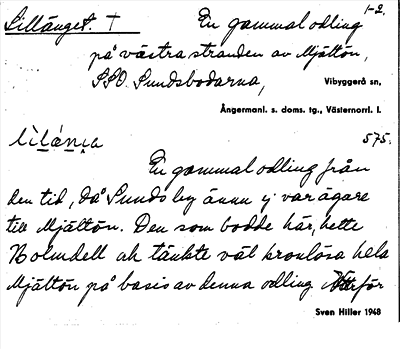 Lillänget. † En gammal odling 1-2.
på västra stranden av Mjältön,
SSO. Sundsbodarna, Vibyggerå sn,
Ångermanl. s. doms. tg., Västernorrl. l.
lìlánːa 575.
En gammal odling från
den tid, då Sunds by ännu ej var ägare
till Mjältön. Den som bodde här, hette
Bolmdell och tänkte väl kronlösa hela
Mjältön på basis av denna odling. Därför
Sven Hiller 1948